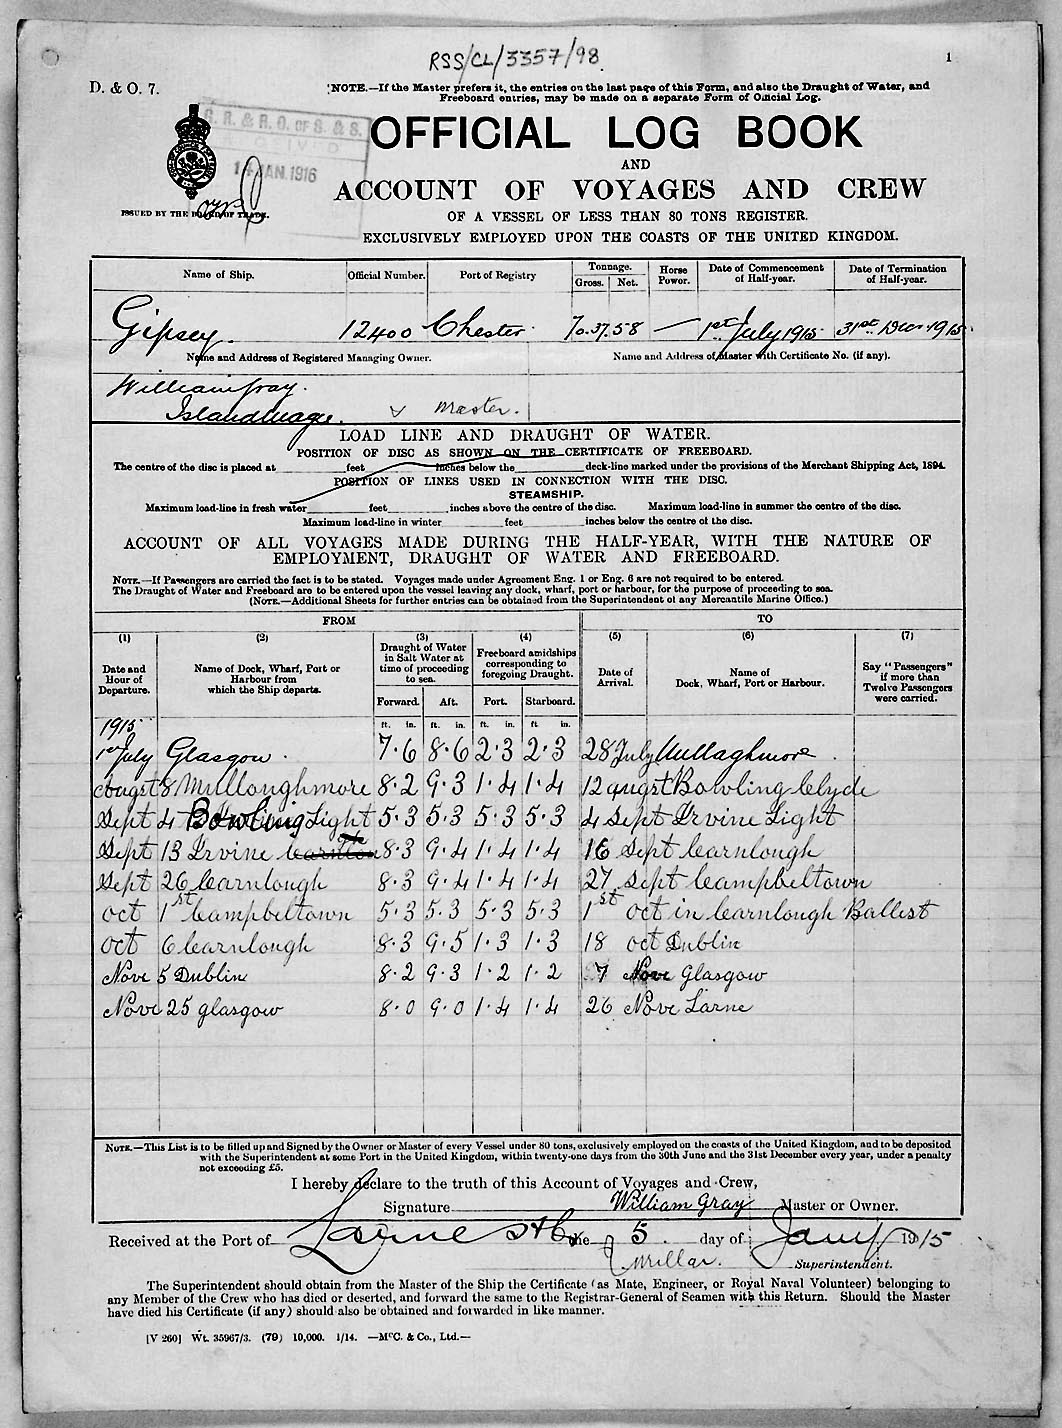 RSS/CL/3357/98
1
D. & O. 7.
NOTE.—If the Master prefers it, the entries on the last page of this Form, and also the Draught of Water, and
Freeboard entries, may be made on a separate Form of Official Log.
G. R. & R. O. OF S. & S.
14 JAN. 1916
OFFICIAL LOG BOOK
AND
ACCOUNT OF VOYAGES AND CREW
ISSUED BY THE BOARD OF TRADE.
OF A VESSEL OF LESS THAN 80 TONS REGISTER.
EXCLUSIVELY EMPLOYED UPON THE COASTS OF THE UNITED KINGDOM.
Name of Ship. Official Number. Port of Registry Tonnage. Gross. Net. Horse Power. Date of Commencement of Half-year. Date of Termination of Half-year.
Gipsey. 12400 Chester 70.37 58 — 1st July 1915 31st Dec 1915
Name and Address of Registered Managing Owner. Name and Address of Master with Certificate No. (if any).
William Gray.
Islandmagee. Master.
LOAD LINE AND DRAUGHT OF WATER.
POSITION OF DISC AS SHOWN ON THE CERTIFICATE OF FREEBOARD.
The centre of the disc is placed at feet inches below the deck-line marked under the provisions of the Merchant Shipping Act, 1894.
POSITION OF LINES USED IN CONNECTION WITH THE DISC.
STEAMSHIP.
Maximum load-line in fresh water feet inches above the centre of the disc. Maximum load-line in summer the centre of the disc.
Maximum load-line in winter feet inches below the centre of the disc.
ACCOUNT OF ALL VOYAGES MADE DURING THE HALF-YEAR, WITH THE NATURE OF
EMPLOYMENT, DRAUGHT OF WATER AND FREEBOARD.
NOTE.—If Passengers are carried the fact is to be stated. Voyages made under Agreement Eng. 1 or Eng. 6 are not required to be entered.
The Draught of Water and Freeboard are to be entered upon the vessel leaving any dock, wharf, port or harbour, for the purpose of proceeding to sea.
(NOTE.—Additional Sheets for further entries can be obtained from the Superintendent of any Mercantile Marine Office.)
FROM TO
(1) (2) (3) (4) (5) (6) (7)
Date and Hour of Departure. Name of Dock, Wharf, Port or Harbour from which the Ship departs. Draught of Water in Salt Water at time of proceeding to sea. Freeboard amidships corresponding to foregoing Draught. Date of Arrival. Name of Dock, Wharf, Port or Harbour. Say "Passengers" if more than Twelve Passengers were carried.
Forward. Aft. Port. Starboard.
ft. in. ft. in. ft. in. ft. in.
1915
1st July Glasgow. 7·6 8·6 2·3 2·3 28 July Mullaghmore
Augst 8 Mulloughmore 8·2 9·3 1·4 1·4 12 augst Bowling Clyde
Sept 4 Bowling Light 5·3 5·3 5·3 5·3 4 Sept Irvine Light
Sept 13 Irvine 8·3 9·4 1·4 1·4 16 Sept Carnlough
Sept 26 Carnlough 8·3 9·4 1·4 1·4 27 Sept Campbeltown
Oct 1st Campbeltown 5·3 5·3 5·3 5·3 1st Oct in Carnlough Ballest
Oct 6 Carnlough 8·3 9·5 1·3 1·3 18 Oct Dublin
Nove 5 Dublin 8·2 9·3 1·2 1·2 7 Nove Glasgow
Nove 25 glasgow 8·0 9·0 1·4 1·4 26 Nove Larne
NOTE.—This List is to be filled up and Signed by the Owner or Master of every Vessel under 80 tons, exclusively employed on the coasts of the United Kingdom, and to be deposited
with the Superintendent at some Port in the United Kingdom, within twenty-one days from the 30th June and the 31st December every year, under a penalty
not exceeding £5.
I hereby declare to the truth of this Account of Voyages and Crew,
Signature William Gray Master or Owner.
Received at the Port of Larne the 5 day of Jany 1915
Millar. Superintendent.
The Superintendent should obtain from the Master of the Ship the Certificate (as Mate, Engineer, or Royal Naval Volunteer) belonging to
any Member of the Crew who has died or deserted, and forward the same to the Registrar-General of Seamen with this Return. Should the Master
have died his Certificate (if any) should also be obtained and forwarded in like manner.
[V 260] Wt. 35967/3. (79) 10,000. 1/14. —McC. & Co., Ltd.—